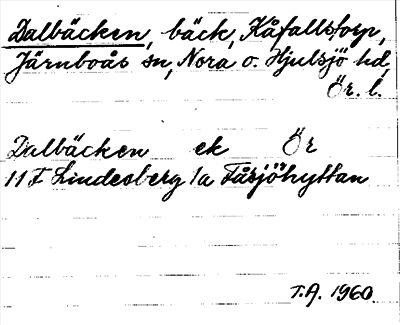 Dalbäcken, bäck, Kåfallstorp,
Järnboås sn, Nora o. Hjulsjö hd,
Ör. l.
Dalbäcken ek Ör
11F Lindesberg 1a Fåsjöhyttan
T.A. 1960